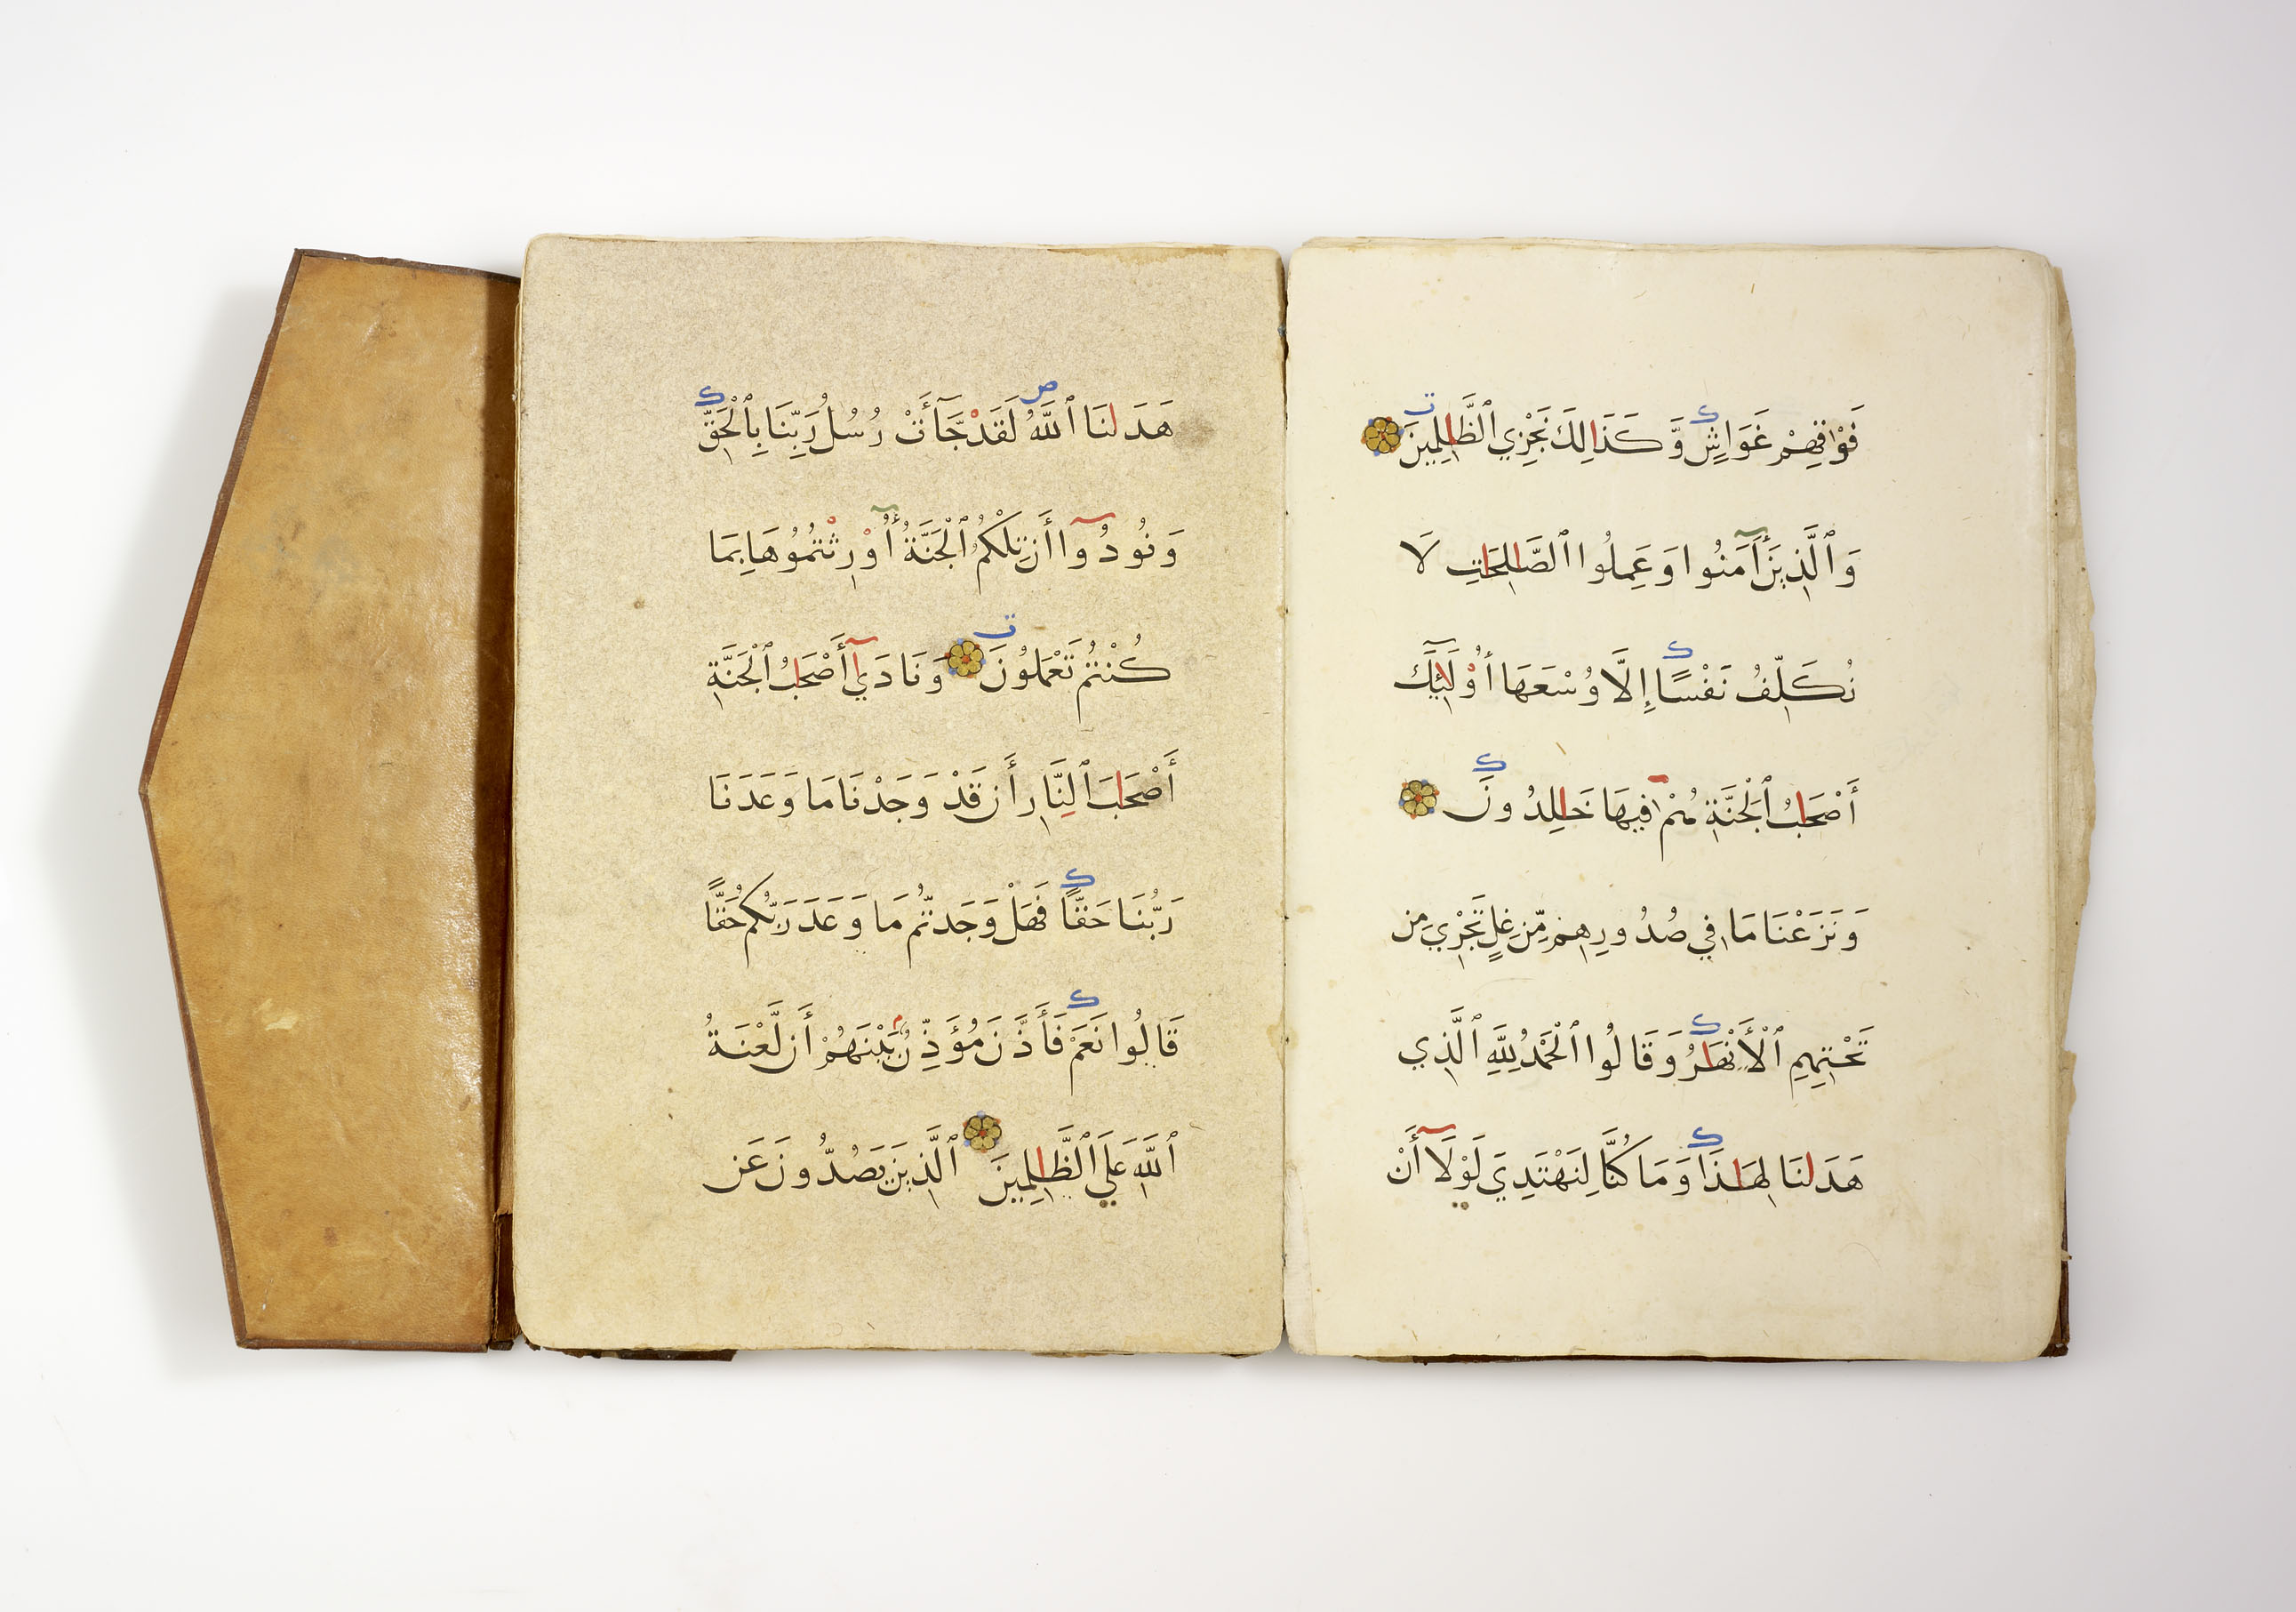 فَوْقِهِمْ غَوَاشٍ وَّكَذَالِكَ نَجْزِي ٱلظَّالِمِينَ
وَٱلَّذِينَ أَٓمَنُوا وَعَمِلُوا ٱلصَّالِحَاتِ لَا
نُكَلِّفُ نَفْسًا إِلَّا وُسْعَهَا أُوْلَائِكَ
أَصْحَابُ ٱلْجَنَّةِ هُمْ فِيهَا خَالِدُونَ
وَنَزَعْنَا مَا فِي صُدُورِهِم مِّنْ غِلٍّ تَجْرِي مِن
تَحْتِهِمِ ٱلْأَنْهَارُ وَقَالُوا ٱلْحَمْدُ لِلَّهِ ٱلَّذِي
هَدَانَا لِهَاذَا وَمَا كُنَّا لِنَهْتَدِيَ لَوْلَآ أَنْ
هَدَانَا ٱللَّهُ لَقَدْ جَّآءَتْ رُسُلُ رَبِّنَا بِٱلْحَقِّ
وَنُودُوٓا أَن تِلْكُمُ ٱلْجَنَّةُ أُوْرِثْتُمُوهَا بِمَا
كُنْتُمْ تَعْمَلُونَ وَنَادَيٓ أَصْحَابُ ٱلْجَنَّةِ
أَصْحَابَ ٱلنَّارِ أَن قَدْ وَجَدْنَا مَا وَعَدَنَا
رَبُّنَا حَقًّا فَهَلْ وَجَدتُّم مَا وَعَدَ رَبُّكُمْ حَقًّا
قَالُوا نَعَمْ فَأَذَّنَ مُؤَذِّنٌ بَيْنَهُمْ أَن لَّعْنَةُ
ٱللَّهِ عَلَي ٱلظَّالِمِينَ ٱلَّذِينَ يَصُدُّونَ عَن